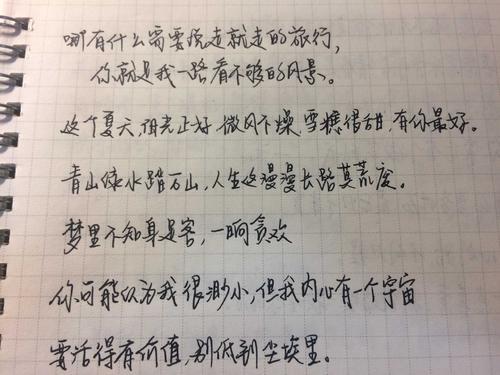 哪有什么需要说走就走的旅行，
你就是我一路看不够的风景。
这个夏天，阳光正好，微风不燥，雪糕很甜，有你最好。
青山绿水踏万山，人生这漫漫长路莫荒废。
梦里不知身是客，一晌贪欢
你可能以为我很渺小，但我内心有一个宇宙
要活得有价值，别低到尘埃里。